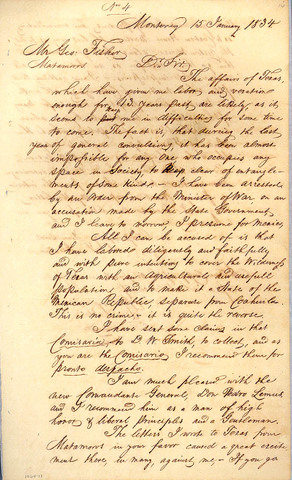 No 4
Monterrey 15 January 1834
Mr Geo. Fisher
Matamoros Dr Sir,
The affairs of Texas,
which have given me labor and vexation
enough for 13 years past, are likely, as it
seems to put me in difficulties for some time
to come. The fact is, that during the last
year of general convulsions, it has been almost
impossible for any one who occupies any
space in Society, to keep clear of entangle-
ments of some kind — I have been arrested
by an order from the Minister of War on an
accusation made by the State Government,
and I leave to morrow, I presume for Mexico
All I can be accused of is that
I have labored diligently and faithfully,
and with pure intentions to cover the Wilderness
of Texas with an Agricultural and usefull
population, and to make it a State of the
Mexican Republic, separate from Coahuila.
This is no crime, it is quite the reverse.
I have sent some claims in that
Comisaria, to D W Smith, to collect, and as
you are the Comisario, I recommend them for
pronto despacho.
I am much pleased with the
new Comandante General, Don Pedro Lemus
and I recommend him as a man of high
honor & liberal principles and a Gentleman.
The letters I wrote to Texas from
Matamoros in your favor caused a great excite
ment there, in many, against me, — If you go